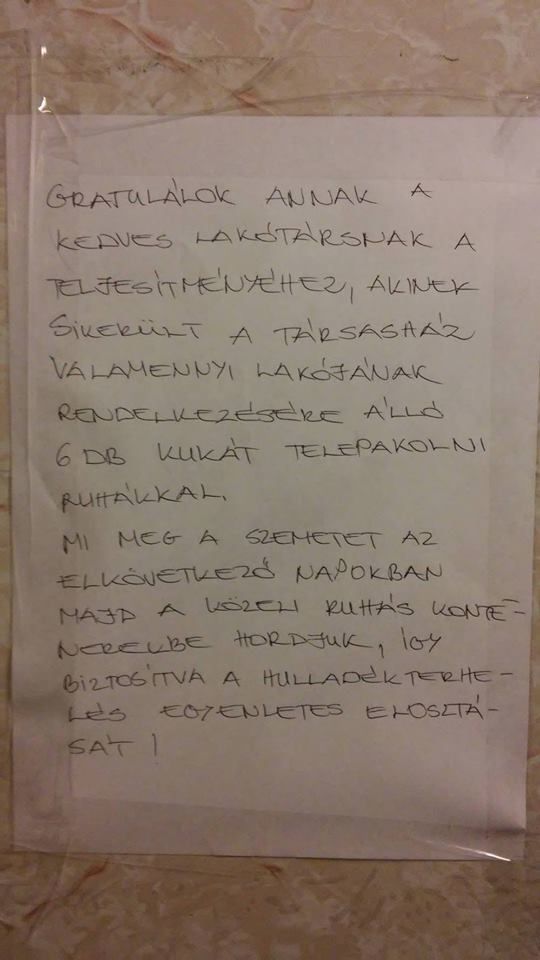 GRATULÁLOK ANNAK A
KEDVES LAKÓTÁRSNAK A
TELJESÍTMÉNYÉHEZ, AKINEK
SIKERÜLT A TÁRSASHÁZ
VALAMENNYI LAKÓJÁNAK
RENDELKEZÉSÉRE ÁLLÓ
6 DB KUKÁT TELEPAKOLNI
RUHÁKKAL.
MI MEG A SZEMETET AZ
ELKÖVETKEZŐ NAPOKBAN
MAJD A KÖZELI RUHÁS KONTÉ-
NEREKBE HORDJUK, ÍGY
BIZTOSÍTVA A HULLADÉKTERHE-
LÉS EGYENLETES ELOSZTÁ-
SÁT!